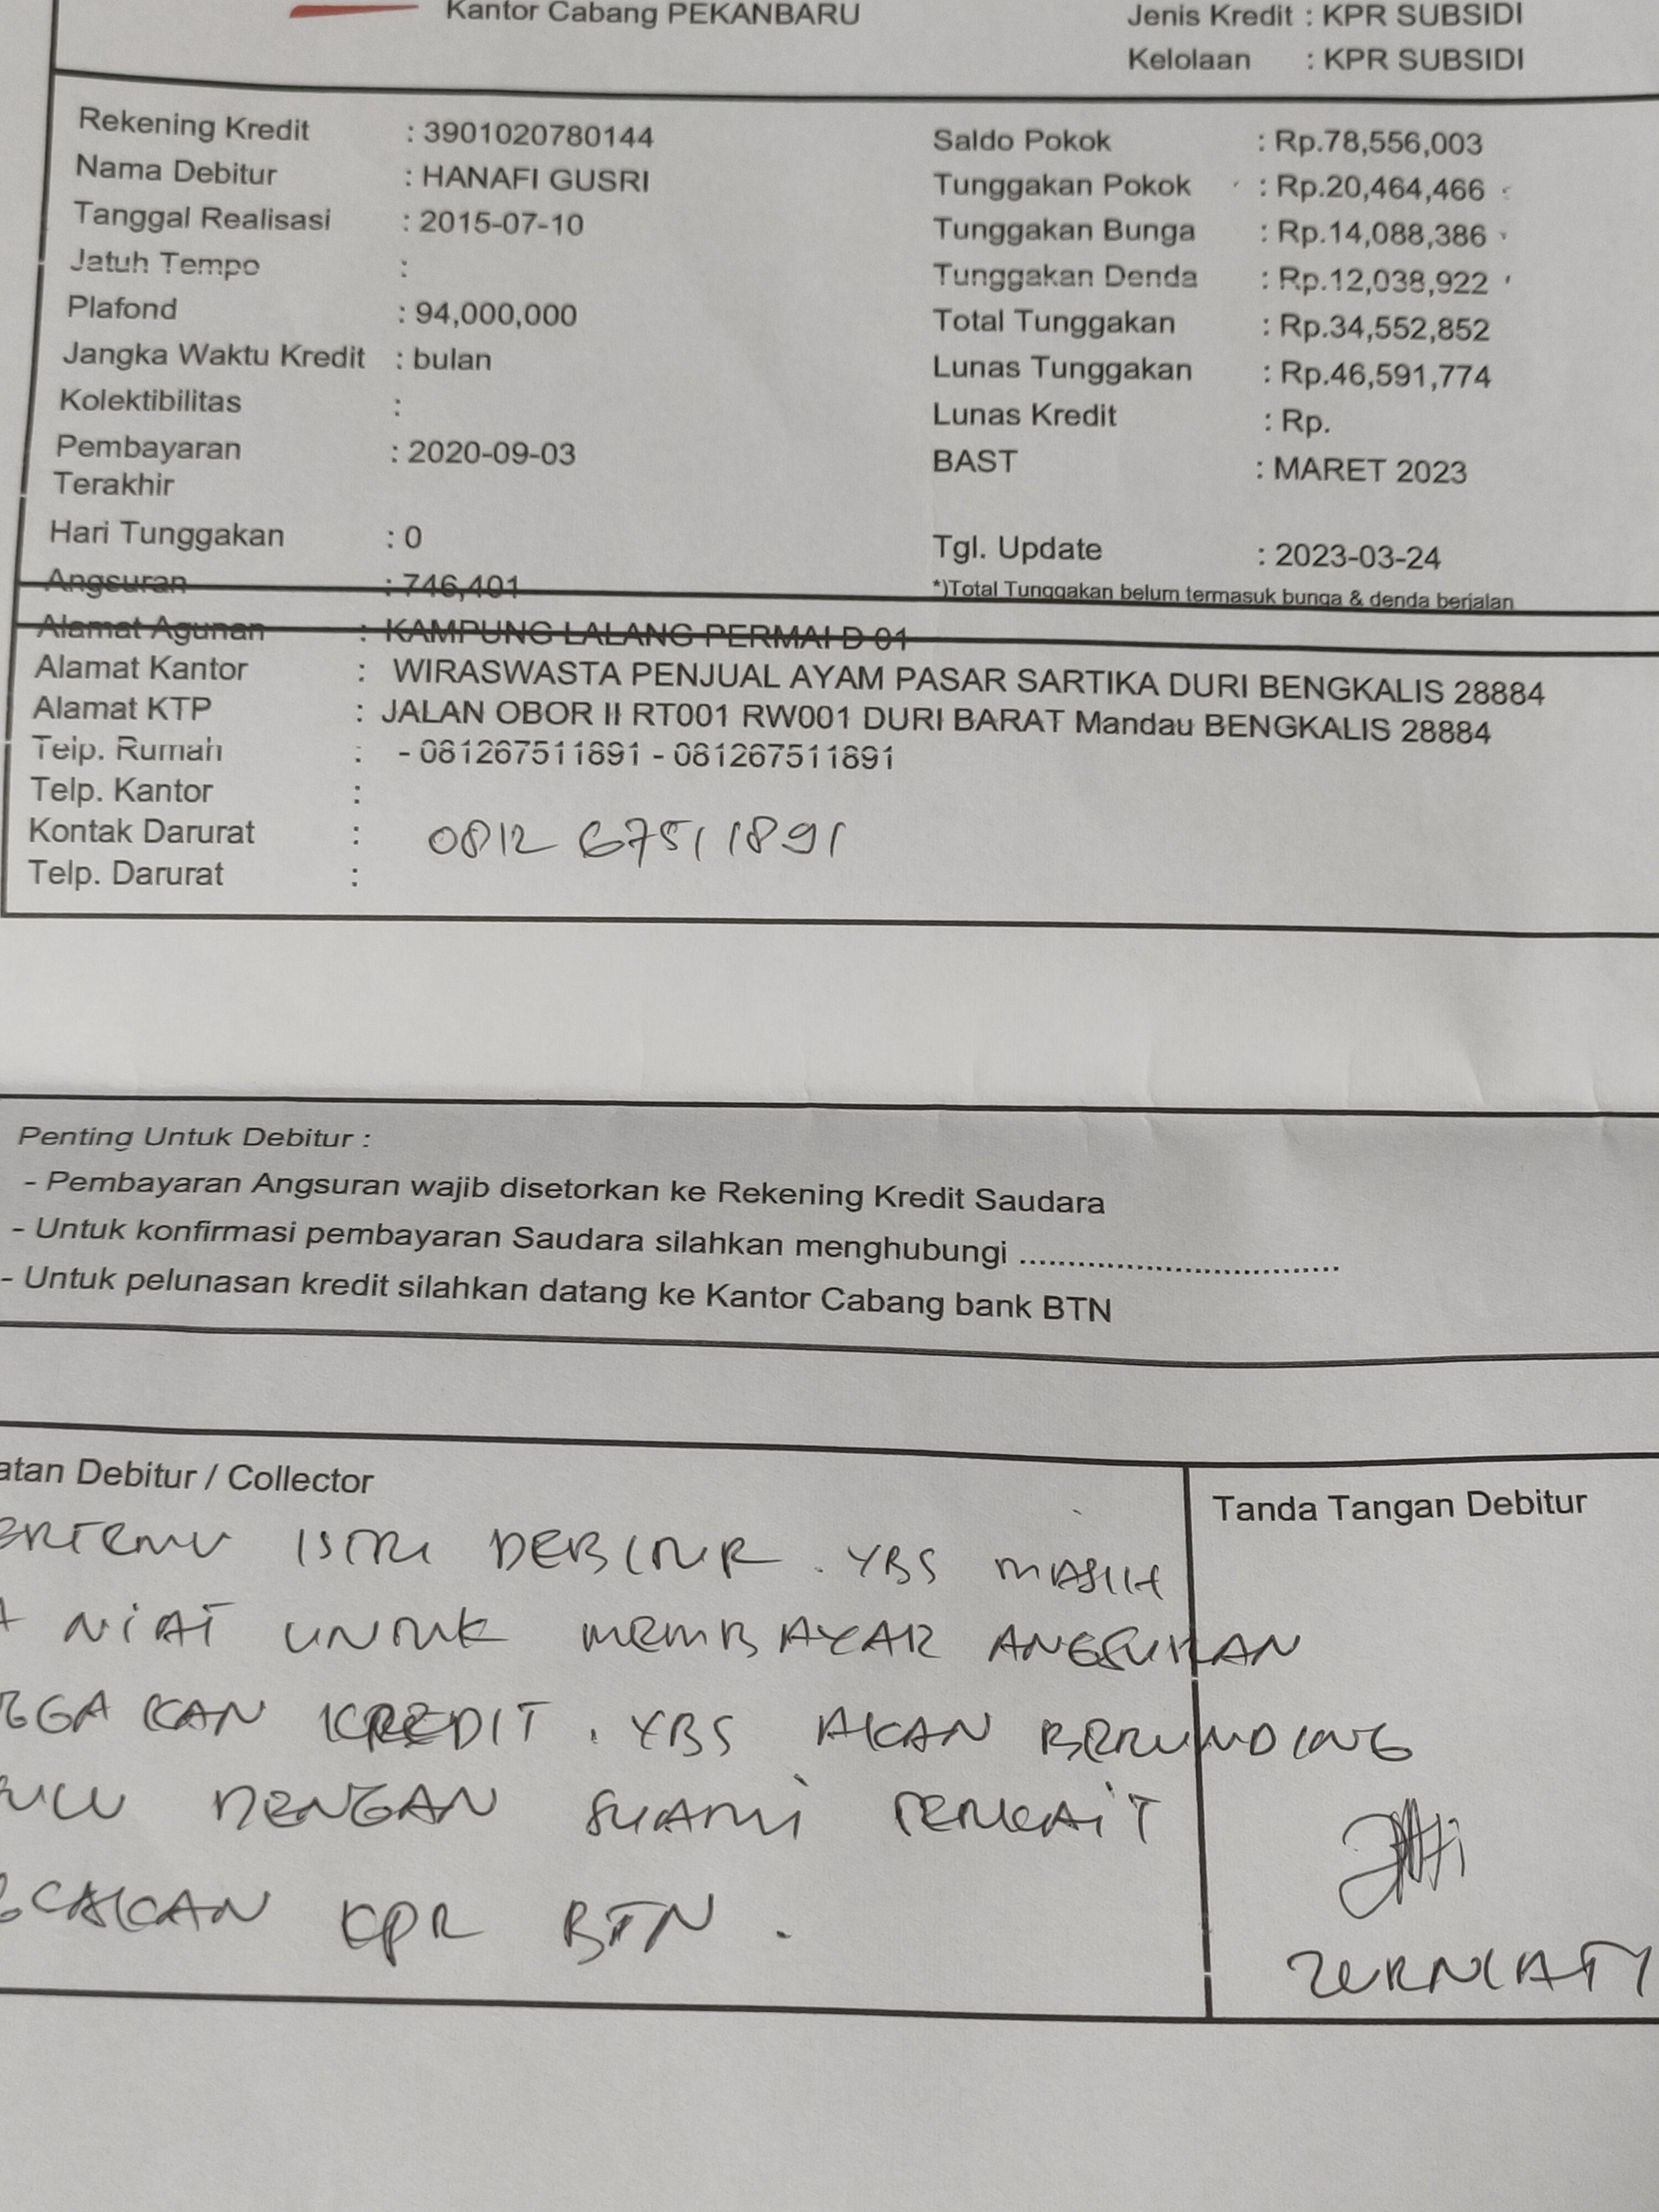 Kantor Cabang PEKANBARU
Jenis Kredit : KPR SUBSIDI
Kelolaan : KPR SUBSIDI
Rekening Kredit : 3901020780144
Nama Debitur : HANAFI GUSRI
Tanggal Realisasi : 2015-07-10
Jatuh Tempo :
Plafond : 94,000,000
Jangka Waktu Kredit : bulan
Kolektibilitas :
Pembayaran Terakhir : 2020-09-03
Hari Tunggakan : 0
Angsuran : 746,401
Saldo Pokok : Rp.78,556,003
Tunggakan Pokok : Rp.20,464,466
Tunggakan Bunga : Rp.14,088,386
Tunggakan Denda : Rp.12,038,922
Total Tunggakan : Rp.34,552,852
Lunas Tunggakan : Rp.46,591,774
Lunas Kredit : Rp.
BAST : MARET 2023
Tgl. Update : 2023-03-24
*)Total Tunggakan belum termasuk bunga & denda berjalan
Alamat Agunan : KAMPUNG LALANG PERMAI D 01
Alamat Kantor : WIRASWASTA PENJUAL AYAM PASAR SARTIKA DURI BENGKALIS 28884
Alamat KTP : JALAN OBOR II RT001 RW001 DURI BARAT Mandau BENGKALIS 28884
Telp. Rumah : - 081267511891 - 081267511891
Telp. Kantor :
Kontak Darurat : 0812 67511891
Telp. Darurat :
Penting Untuk Debitur :
- Pembayaran Angsuran wajib disetorkan ke Rekening Kredit Saudara
- Untuk konfirmasi pembayaran Saudara silahkan menghubungi ................................
- Untuk pelunasan kredit silahkan datang ke Kantor Cabang bank BTN
atan Debitur / Collector
ERTEMU ISTRI DEBITUR . YBS MASIH
A NIAT UNTUK MEMBAYAR ANGSURAN
GGAKAN KREDIT . YBS AKAN BERUNDING
ULU DENGAN SUAMI TERKAIT
GGAKAN KPR BTN .
Tanda Tangan Debitur
ZURNIATI